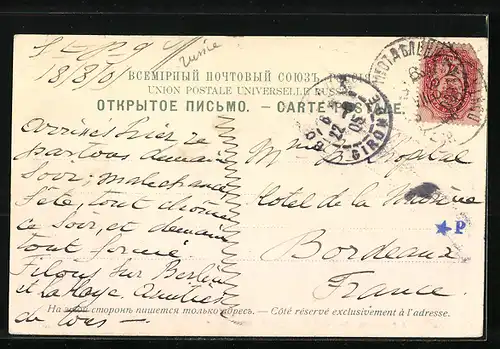 18/8/01
russie
ВСЕМІРНЫЙ ПОЧТОВЫЙ СОЮЗЪ. РОССІЯ.
UNION POSTALE UNIVERSELLE RUSSIE
ОТКРЫТОЕ ПИСЬМО. — CARTE POSTALE.
GIRONDE
arrivés hier
partons demain
soir; malechance
fête, tout chôme
ce soir, et demain
tout fermé.
Filons sur Berlin
et La Haye. Amitiés
de tous —
Hotel de la
Bordeaux
France.
P
На этой сторонѣ пишется только адресъ. — Côté réservé exclusivement à l'adresse.